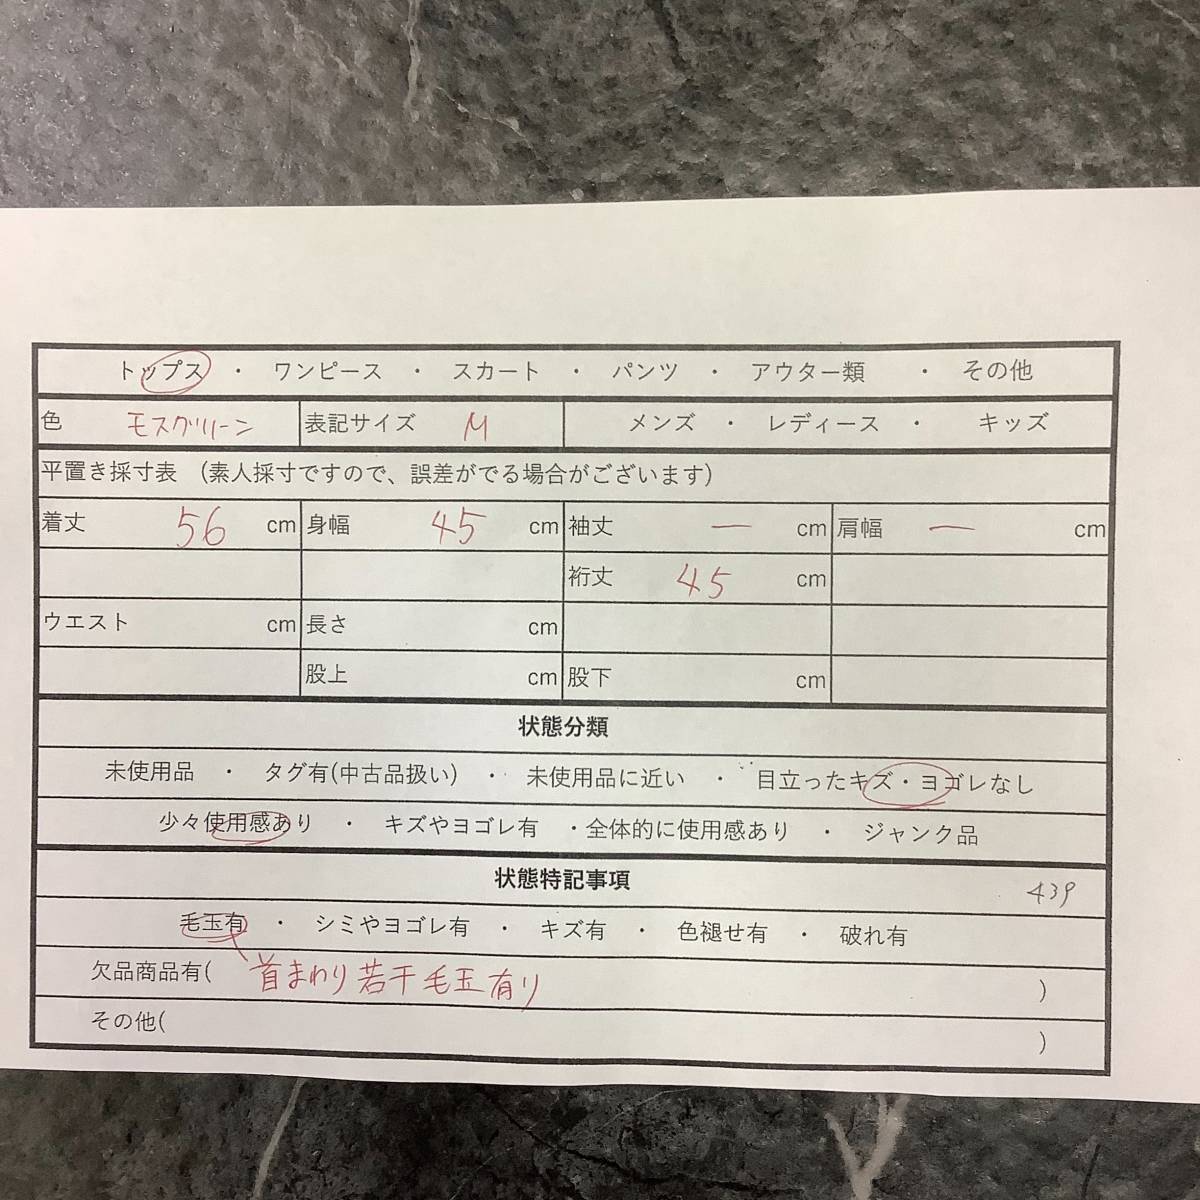 トップス ・ ワンピース ・ スカート ・ パンツ ・ アウター類 ・ その他
色 モスグリーン 表記サイズ M メンズ ・ レディース ・ キッズ
平置き採寸表 (素人採寸ですので、誤差がでる場合がございます)
着丈 56 cm 身幅 45 cm 袖丈 ー cm 肩幅 ー cm
裄丈 45 cm
ウエスト cm 長さ cm
股上 cm 股下 cm
状態分類
未使用品 ・ タグ有(中古品扱い) ・ 未使用品に近い ・ 目立ったキズ・ヨゴレなし
少々使用感あり ・ キズやヨゴレ有 ・全体的に使用感あり ・ ジャンク品
状態特記事項 439
毛玉有 ・ シミやヨゴレ有 ・ キズ有 ・ 色褪せ有 ・ 破れ有
欠品商品有( 首まわり若干毛玉有り )
その他( )